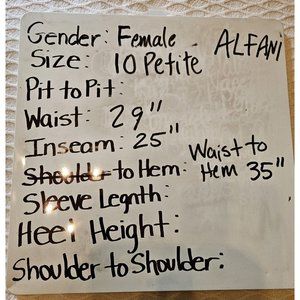 Gender: Female - ALFANI
Size: 10 Petite
Pit to Pit:
Waist: 29"
Inseam: 25"
Shoulder to Hem: Waist to Hem 35"
Sleeve Legnth:
Heel Height:
Shoulder to Shoulder: